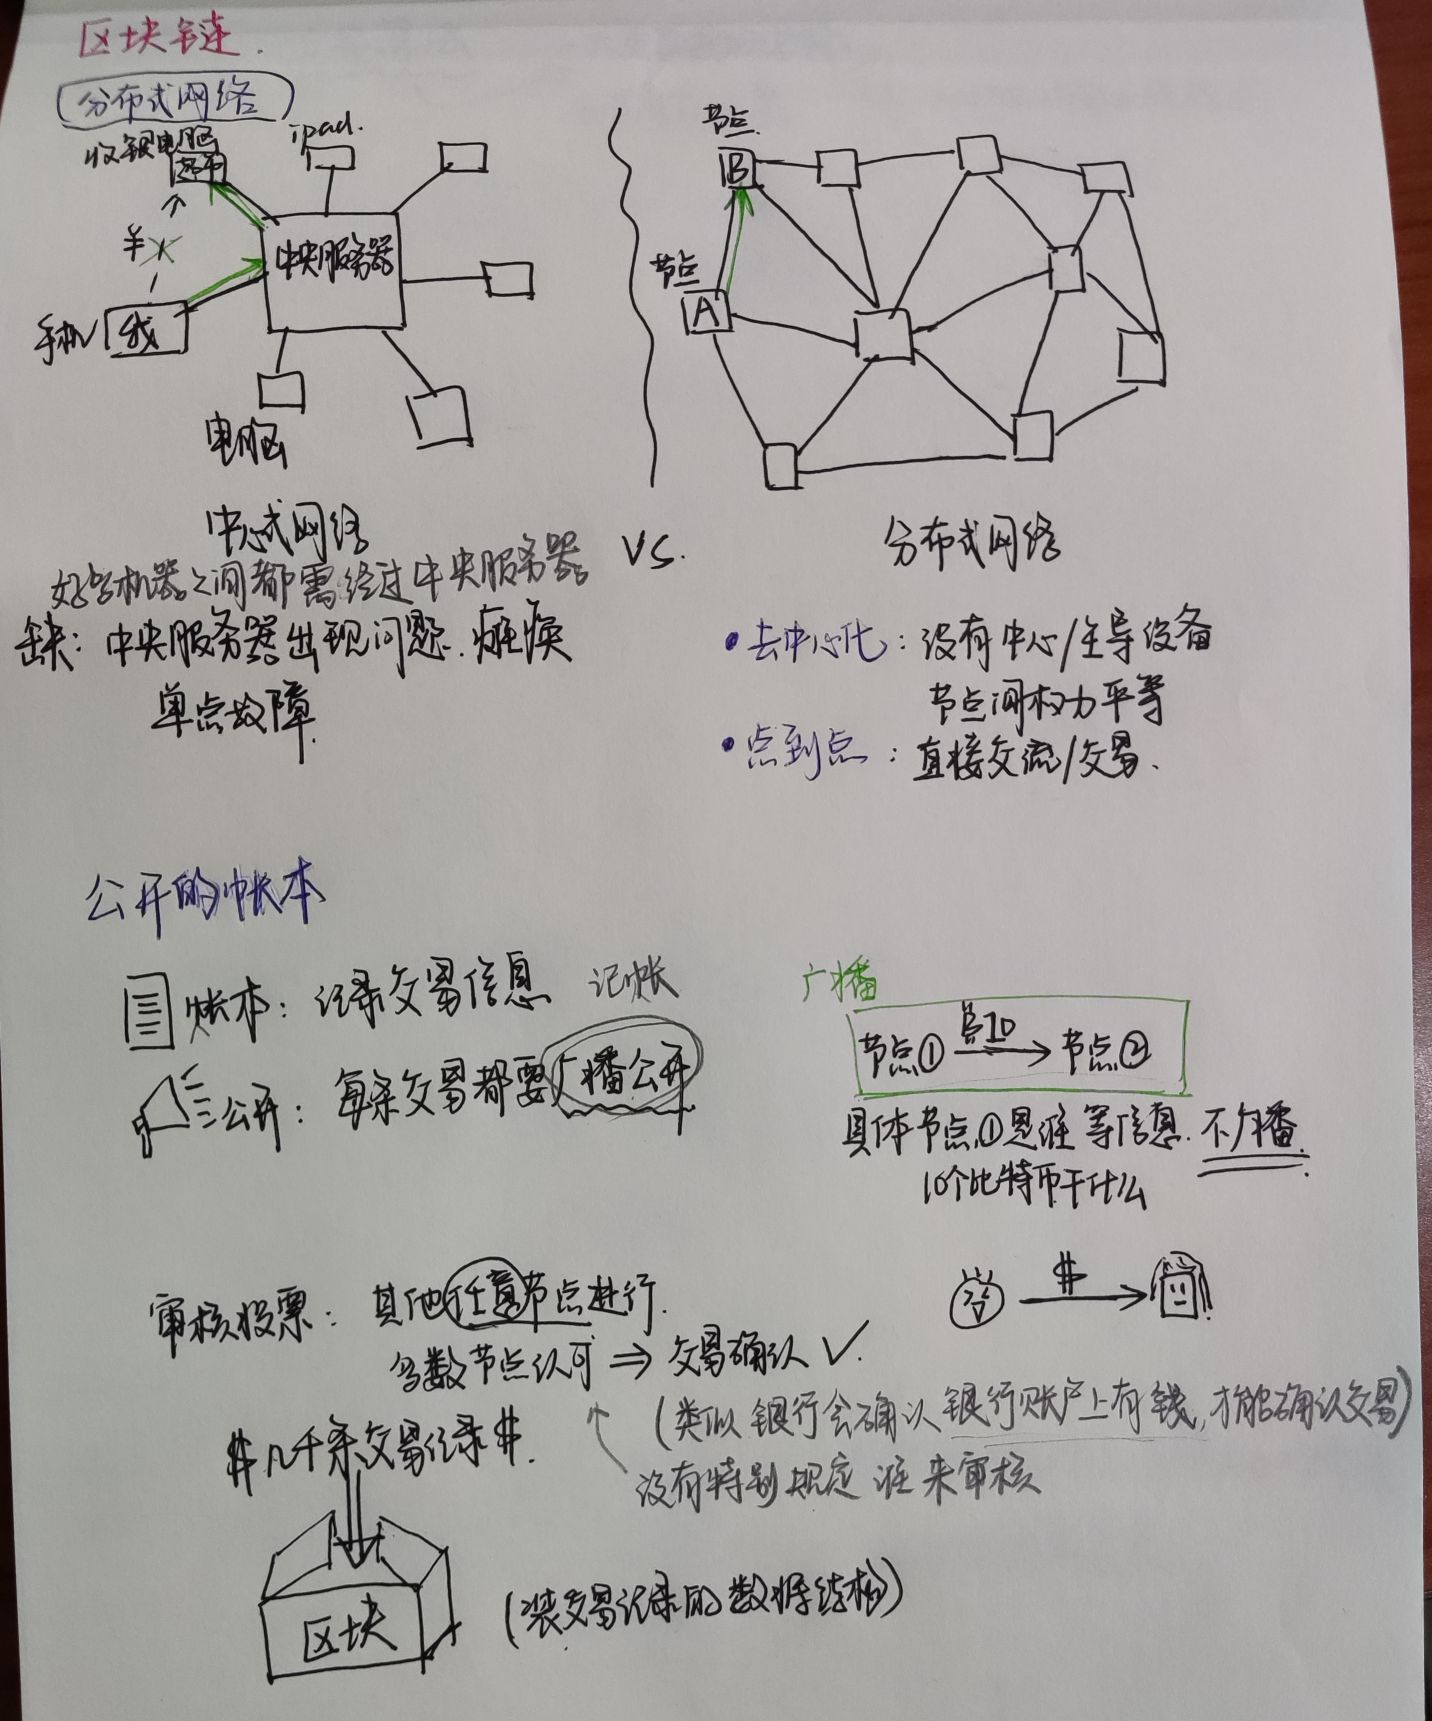 区块链.
分布式网络
收银电脑
超市
ipad.
¥
中央服务器
手机
我
电脑
中心式网络
机器之间都需经过中央服务器
缺: 中央服务器出现问题. 瘫痪
单点故障.
VS.
节点.
B
节点
A
分布式网络
• 去中心化: 没有中心/主导设备
节点间权力平等
• 点到点: 直接交流/交易.
公开的帐本
账本: 记录交易信息 记帐
公开: 每条交易都要广播公开
广播
节点① 10 节点②
具体节点①是谁等信息. 不广播.
10个比特币干什么
$
审核投票: 其他任意节点进行.
多数节点认可 ⇒ 交易确认 ✓.
(类似银行会确认银行账户上有钱,才能确认交易)
没有特别规定谁来审核
$几千条交易记录$.
区块
(装交易记录的数据结构)